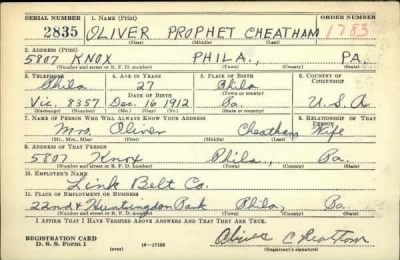 SERIAL NUMBER 1. NAME (Print) ORDER NUMBER
2835 OLIVER PROPHET CHEATHAM 1783
(First) (Middle) (Last)
2. ADDRESS (Print)
5807 KNOX PHILA., PA.
(Number and street or R. F. D. number) (Town) (County) (State)
3. TELEPHONE 4. AGE IN YEARS 5. PLACE OF BIRTH 6. COUNTRY OF CITIZENSHIP
Phila 27 Phila
DATE OF BIRTH (Town or county)
Vic. 8357 Dec. 16 1912 Pa. U.S.A.
(Exchange) (Number) (Mo.) (Day) (Yr.) (State or country)
7. NAME OF PERSON WHO WILL ALWAYS KNOW YOUR ADDRESS 8. RELATIONSHIP OF THAT PERSON
Mrs. Oliver Cheatham Wife
(Mr., Mrs., Miss) (First) (Middle) (Last)
9. ADDRESS OF THAT PERSON
5807 Knox Phila., Pa.
(Number and street or R. F. D. number) (Town) (County) (State)
10. EMPLOYER'S NAME
Link Belt Co.
11. PLACE OF EMPLOYMENT OR BUSINESS
22nd & Huntingdon Park Phila, Pa.
(Number and street or R. F. D. number) (Town) (County) (State)
I AFFIRM THAT I HAVE VERIFIED ABOVE ANSWERS AND THAT THEY ARE TRUE.
REGISTRATION CARD
D. S. S. Form 1 (over) 16—17105 Oliver Cheatham